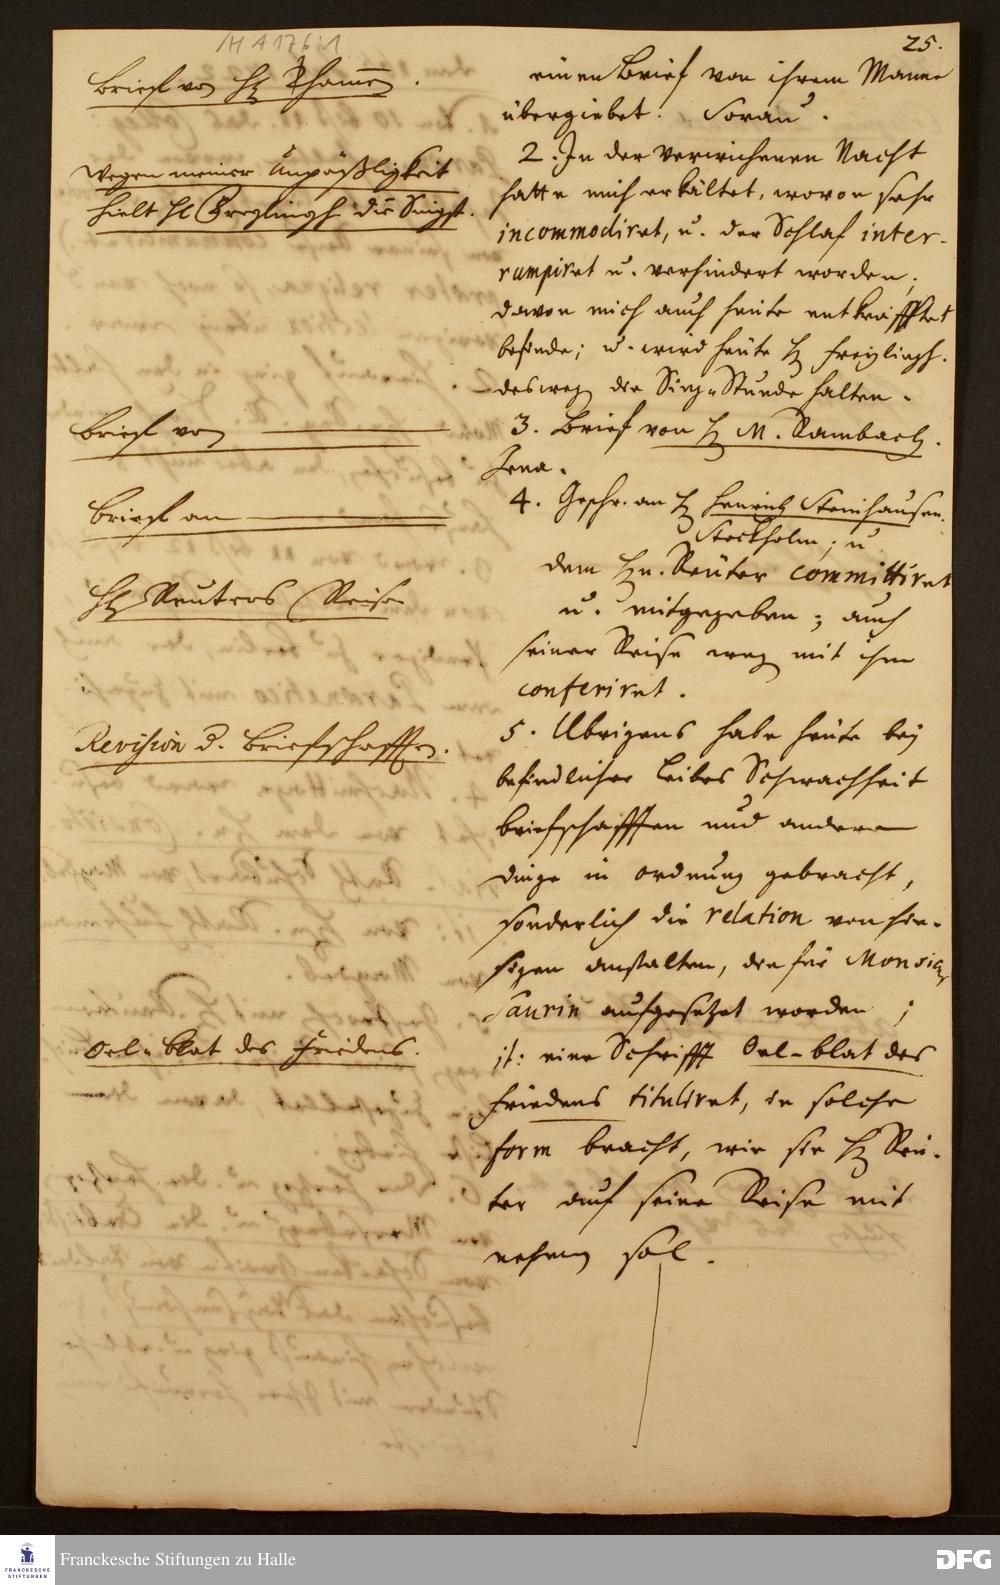 H A 176:1
25.
Brieff von H. Thomen.
einen Brief von ihrem Manne
übergiebet. Sorau.
Wegen meiner Unpäßligkeit
hielt H. Freylingh. die Singst.
2. In der verwichenen Nacht
hatte mich erkältet, wovon sehr
incommodiret, u. der Schlaf inter-
rumpiret u. verhindert worden;
davon mich auch heute entkräfftet
befinde; u. wird heute H. Freylingh.
desweg. die Sing-Stunde halten.
Brieff von
3. Brief von H. M. Rambach.
Jena.
Brieff an
4. Geschr. an H. Henrich Steinhausen.
Stockholm; u
dem Hn. Reuter committiret
u. mitgegeben; auch
H. Reuters Reise
seiner Reise weg. mit ihm
conferiret.
Revision d. Brieffschafften.
5. Ubrigens habe heute bey
befindlicher Leibes Schwachheit
briefschafften und andere
dinge in ordnung gebracht,
sonderlich die relation von hie-
sigen anstalten, die für Monsieur
Saurin aufgesetzet worden;
Oel-blat des Friedens.
it: eine Schrifft Oel-blat des
Friedens tituliret, in solche
form bracht, wie sie H. Reu-
ter auf seine Reise mit
nehmen sol.
Franckesche Stiftungen zu Halle
FRANCKESCHE
STIFTUNGEN
DFG